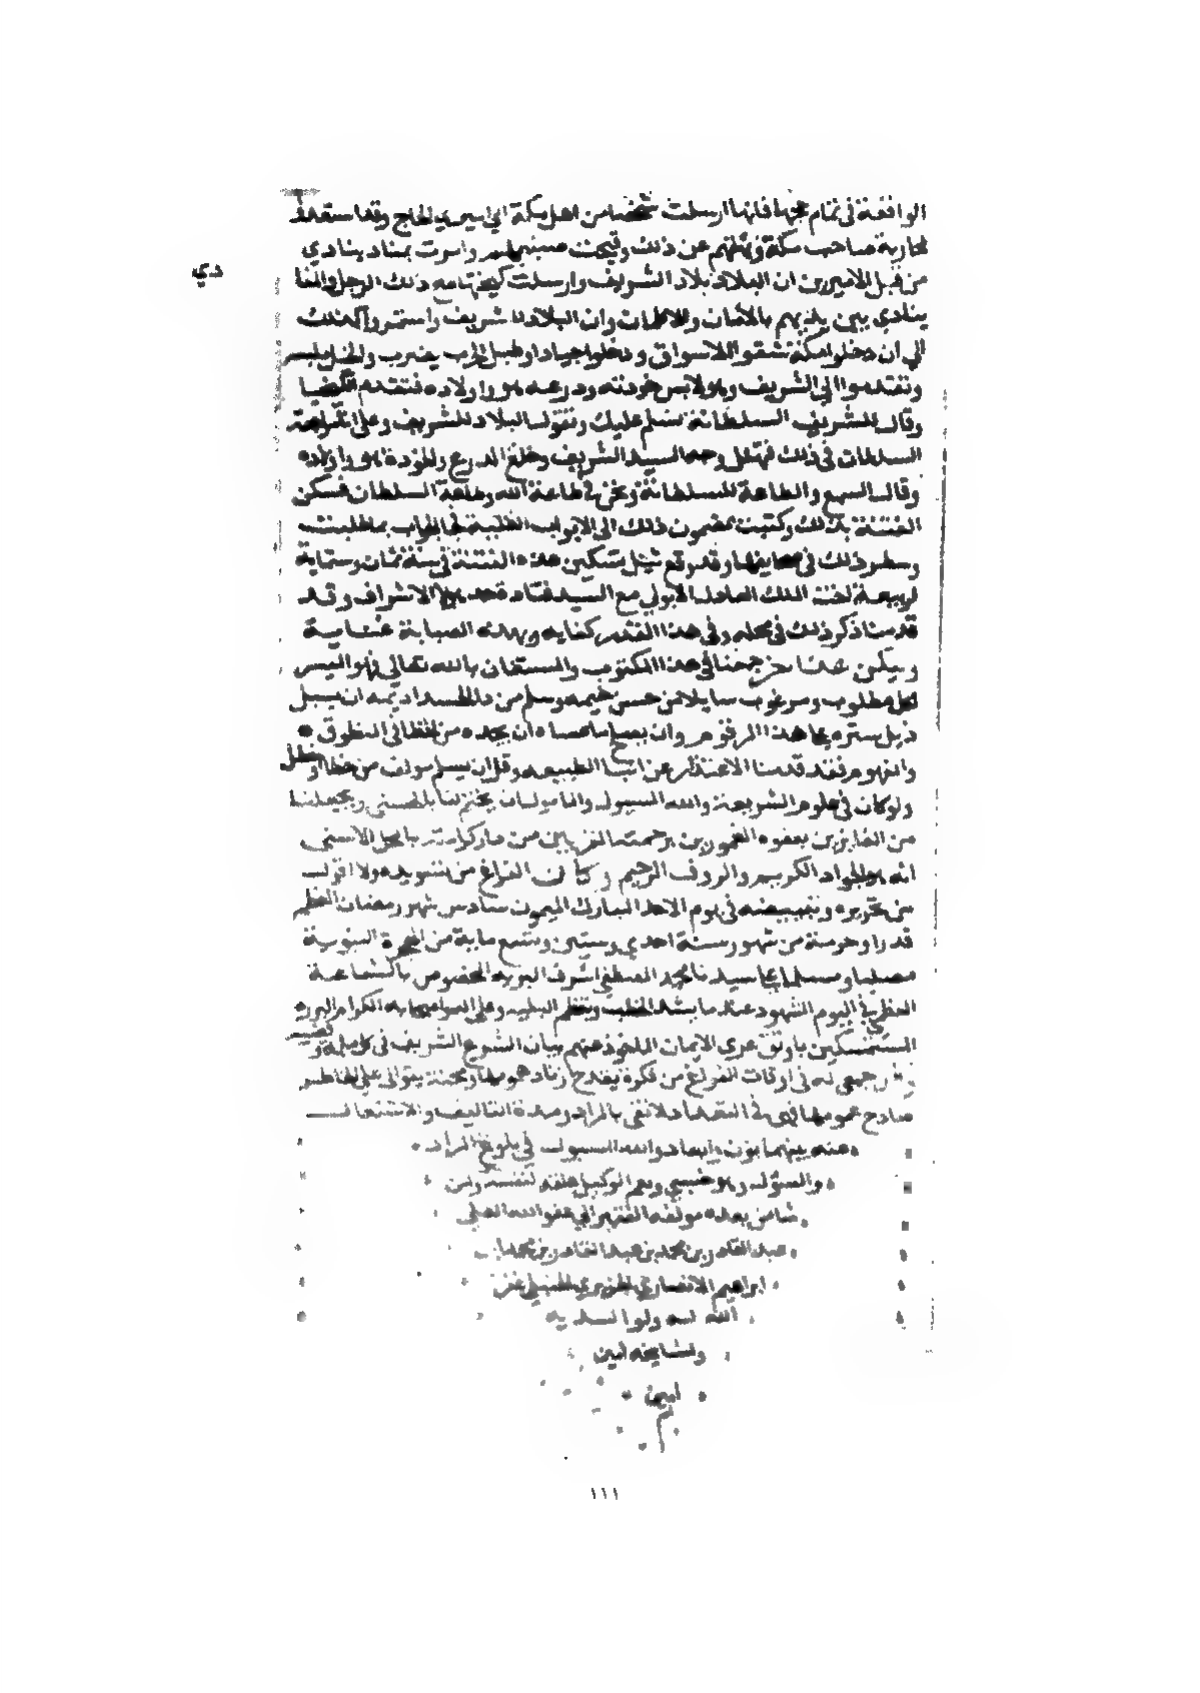 الواقعة في تمام حجها فانها ارسلت شخصا من اهل مكة الي اميري الحاج وقد استعدا
لمحاربة صاحب مكة ونهتهم عن ذلك وقبحت صنيعهم وامرت بمناد ينادي
من قبل الاميرين ان البلاد بلاد الشريف وارسلت ذلك الرجل والمنا
دي
ينادي بين يديهم بالأمان والاطمان وان البلاد للشريف واستمروا كذلك
الي ان دخلوا مكة شقوا الاسواق ودخلوا اجيادا وطبل الحرب يضرب
وتقدموا الي الشريف وهو لابس خودته ودرعه هو واولاده فتقدم
وقال للشريف السلطانة تسلم عليك وتقول البلاد للشريف وعلي
السلطان في ذلك فتهلل وجه السيد الشريف وخلع الدرع والخودة هو واولاده
وقال السمع والطاعة للسلطانة ونحن في طاعة الله وطاعة السلطان فسكن
الفتنة بذلك وكتبت مضمون ذلك الي الابواب فجا الجواب بما طلبت
وسطر ذلك في صحايفها وقد وقع مثل تسكين هذه الفتنة في سنة ثمان وستماية
لربيعة اخت الملك العادل الايوبي مع السيد قتادة جد هولا الاشراف وقد
قدمنا ذكر ذلك في محله وفي هذا القدر كفاية وبهذه الصبابة عناية
وليكن هذا اخر جمعنا في هذا المكتوب والمستعان بالله تعالي فهو الميسر
لكل مطلوب ومرغوب سايلا من حسن خيمه وسلم من دا الحسد اديمه ان يسبل
ذيل ستره علي هذا المرقوم وان يصلح ما عساه ان يجده من الخطا في المنطوق
والمفهوم فقد قدمنا الاعتذار عن ابنا الطبيعه وقل ان يسلم مولف من خطا او خطل
ولو كان في علوم الشريعة والله المسيول والمامول ان يختم لنا بالحسني ويجعلنا
من الفايزين بعفوه المغمورين برحمته المقربين من دار كرامته بالمحل الاسني
انه هو الجواد الكريم والروف الرحيم وكان الفراغ من تسويده ولا اقول
من تحريره وتبييضه في يوم الاحد المبارك الميمون سادس شهر رمضان المعظم
قدرا وحرمة من شهور سنة احدي وستين وتسع ماية من الهجرة النبوية
مصليا ومسلما علي سيدنا محمد المصطفي اشرف البرية المخصوص بالشفاعة
العظمي في اليوم المشهود عندما يشتد الخطب وتعظم البلية وعلي اله واصحابه الكرام البررة
المستمسكين باوثق عري الايمان الماخوذ عنهم بيان الشرع الشريف في كل ملة وقضية
جمعي له في اوقات الفراغ من فكرة يقدح زناد همومها ومحنة يتوالي علي الخاطر
صادح غمومها فهي في التعداد لا تفي بالمراد ومدة التاليف والاشتغال
عنه بينهما بون وابعاد والله المسيول في بلوغ المراد
والمسؤل وهو حسبي ونعم الوكيل علقه لنفسه ولمن
شا من بعده مولفه الفقير الي عفو الله العلي
عبد القادر بن محمد بن عبد القادر بن محمد بن
ابراهيم الانصاري الجزيري الحنبلي غفر
الله له ولوالديه
ولمشايخه امين
امين
م
١١١